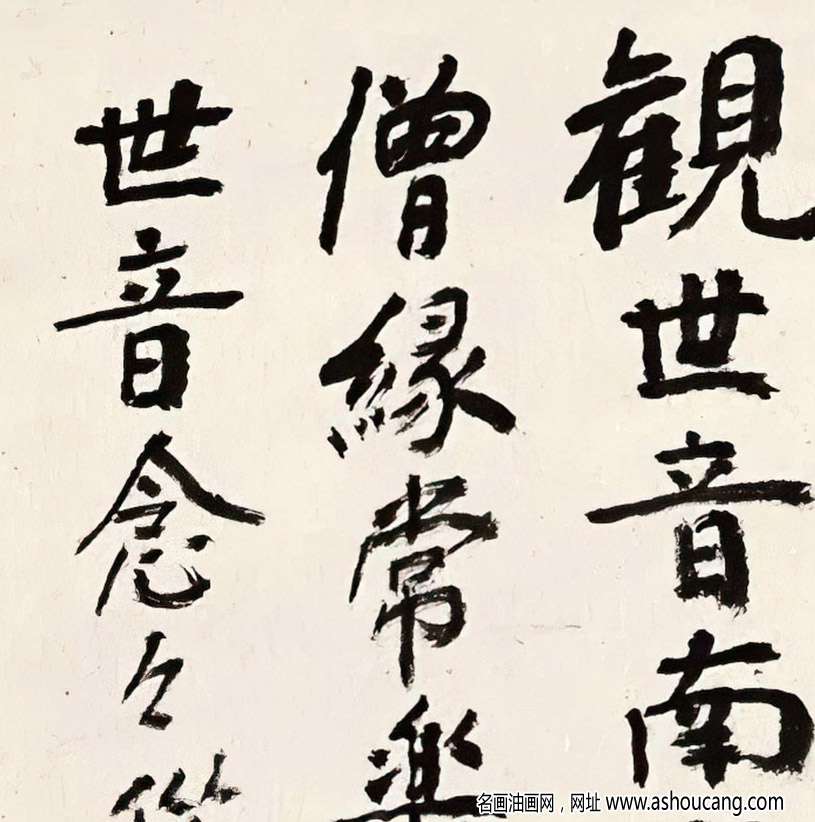 観世音南
僧緣常樂
世音念々從
名画油画网，网址 www.ashoucang.com